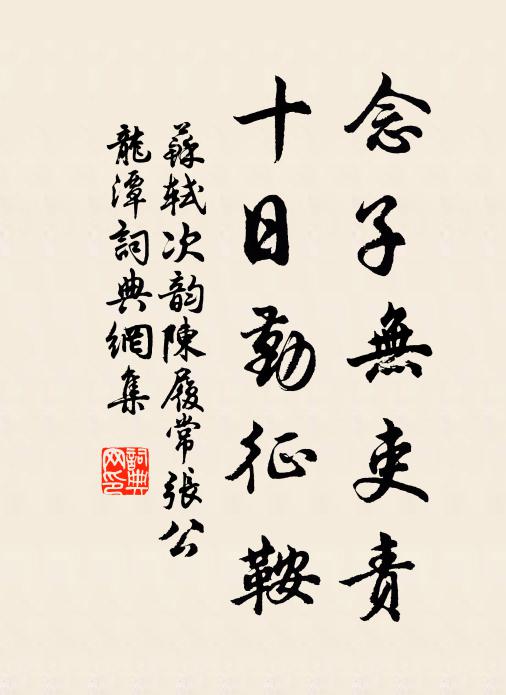 念子無吏責
十日勤征鞍
蘇軾次韵陳履常張公
龍潭詞典網集
詞典网印